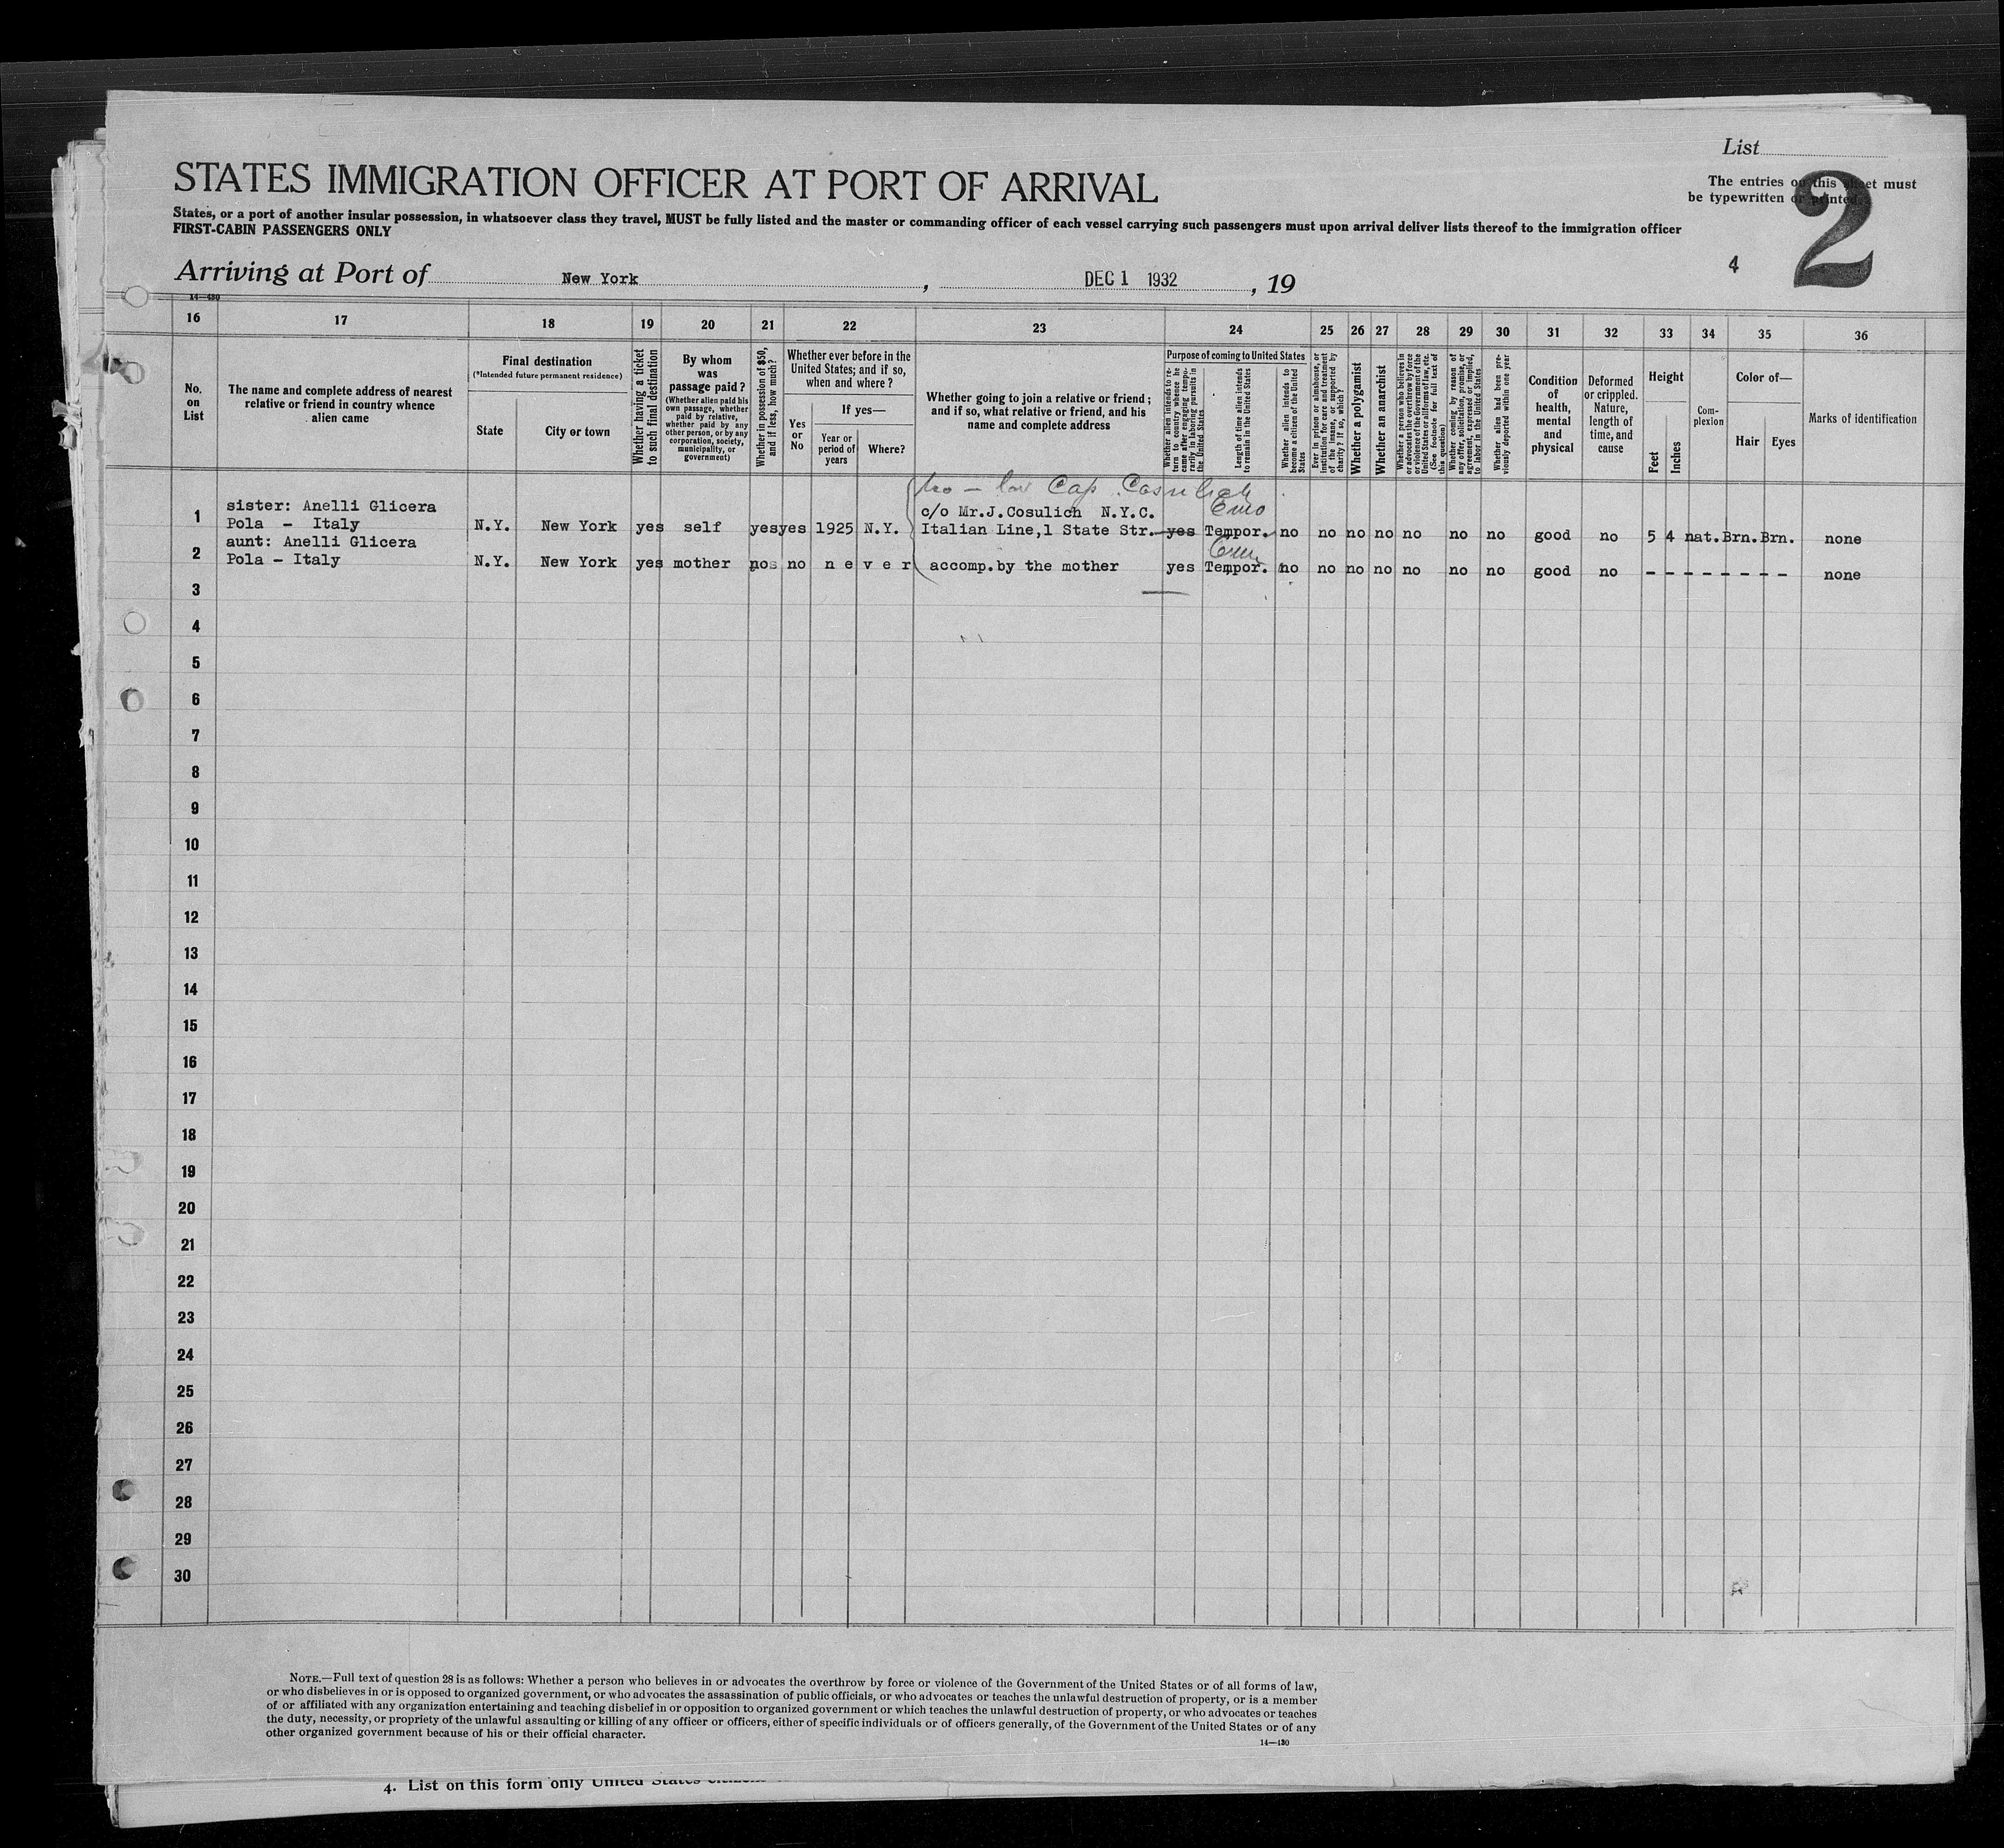 List
STATES IMMIGRATION OFFICER AT PORT OF ARRIVAL
The entries on this sheet must
be typewritten or printed.
2
States, or a port of another insular possession, in whatsoever class they travel, MUST be fully listed and the master or commanding officer of each vessel carrying such passengers must upon arrival deliver lists thereof to the immigration officer
FIRST-CABIN PASSENGERS ONLY
4
Arriving at Port of New York, DEC 1 1932, 19
14—430
16 17 18 19 20 21 22 23 24 25 26 27 28 29 30 31 32 33 34 35 36
No. on List
The name and complete address of nearest relative or friend in country whence alien came
Final destination
(*Intended future permanent residence)
State
City or town
Whether having a ticket to such final destination
By whom was passage paid?
(Whether alien paid his own passage, whether paid by relative, whether paid by any other person, or by any corporation, society, municipality, or government)
Whether in possession of $50, and if less, how much?
Whether ever before in the United States; and if so, when and where?
Yes or No
If yes—
Year or period of years
Where?
Whether going to join a relative or friend; and if so, what relative or friend, and his name and complete address
Purpose of coming to United States
Whether alien intends to return to country whence he came after engaging temporarily in laboring pursuits in the United States
Length of time alien intends to remain in the United States
Whether alien intends to become a citizen of the United States
Ever in prison or almshouse, or institution for care and treatment of the insane, or supported by charity? If so, which?
Whether a polygamist
Whether an anarchist
Whether a person who believes in or advocates the overthrow by force or violence of the Government of the United States or all forms of law, etc. (See footnote for full text of this question)
Whether coming by reason of any offer, solicitation, promise, or agreement, expressed or implied, to labor in the United States
Whether alien had been previously deported within one year
Condition of health, mental and physical
Deformed or crippled. Nature, length of time, and cause
Height
Feet
Inches
Complexion
Color of—
Hair
Eyes
Marks of identification
Cap. Cosulich
sister: Anelli Glicera c/o Mr.J.Cosulich N.Y.C. 6 mo
1 Pola - Italy N.Y. New York yes self yes yes 1925 N.Y. Italian Line,1 State Str. yes Tempor. no no no no no no no good no 5 4 nat. Brn. Brn. none
aunt: Anelli Glicera
2 Pola - Italy N.Y. New York yes mother no no never accomp.by the mother yes Tempor. no no no no no no no good no - - - - - - - - none
3
4
5
6
7
8
9
10
11
12
13
14
15
16
17
18
19
20
21
22
23
24
25
26
27
28
29
30
NOTE.—Full text of question 28 is as follows: Whether a person who believes in or advocates the overthrow by force or violence of the Government of the United States or of all forms of law,
or who disbelieves in or is opposed to organized government, or who advocates the assassination of public officials, or who advocates or teaches the unlawful destruction of property, or is a member
of or affiliated with any organization entertaining and teaching disbelief in or opposition to organized government or which teaches the unlawful destruction of property, or who advocates or teaches
the duty, necessity, or propriety of the unlawful assaulting or killing of any officer or officers, either of specific individuals or of officers generally, of the Government of the United States or of any
other organized government because of his or their official character.
14—430
4. List on this form only United States